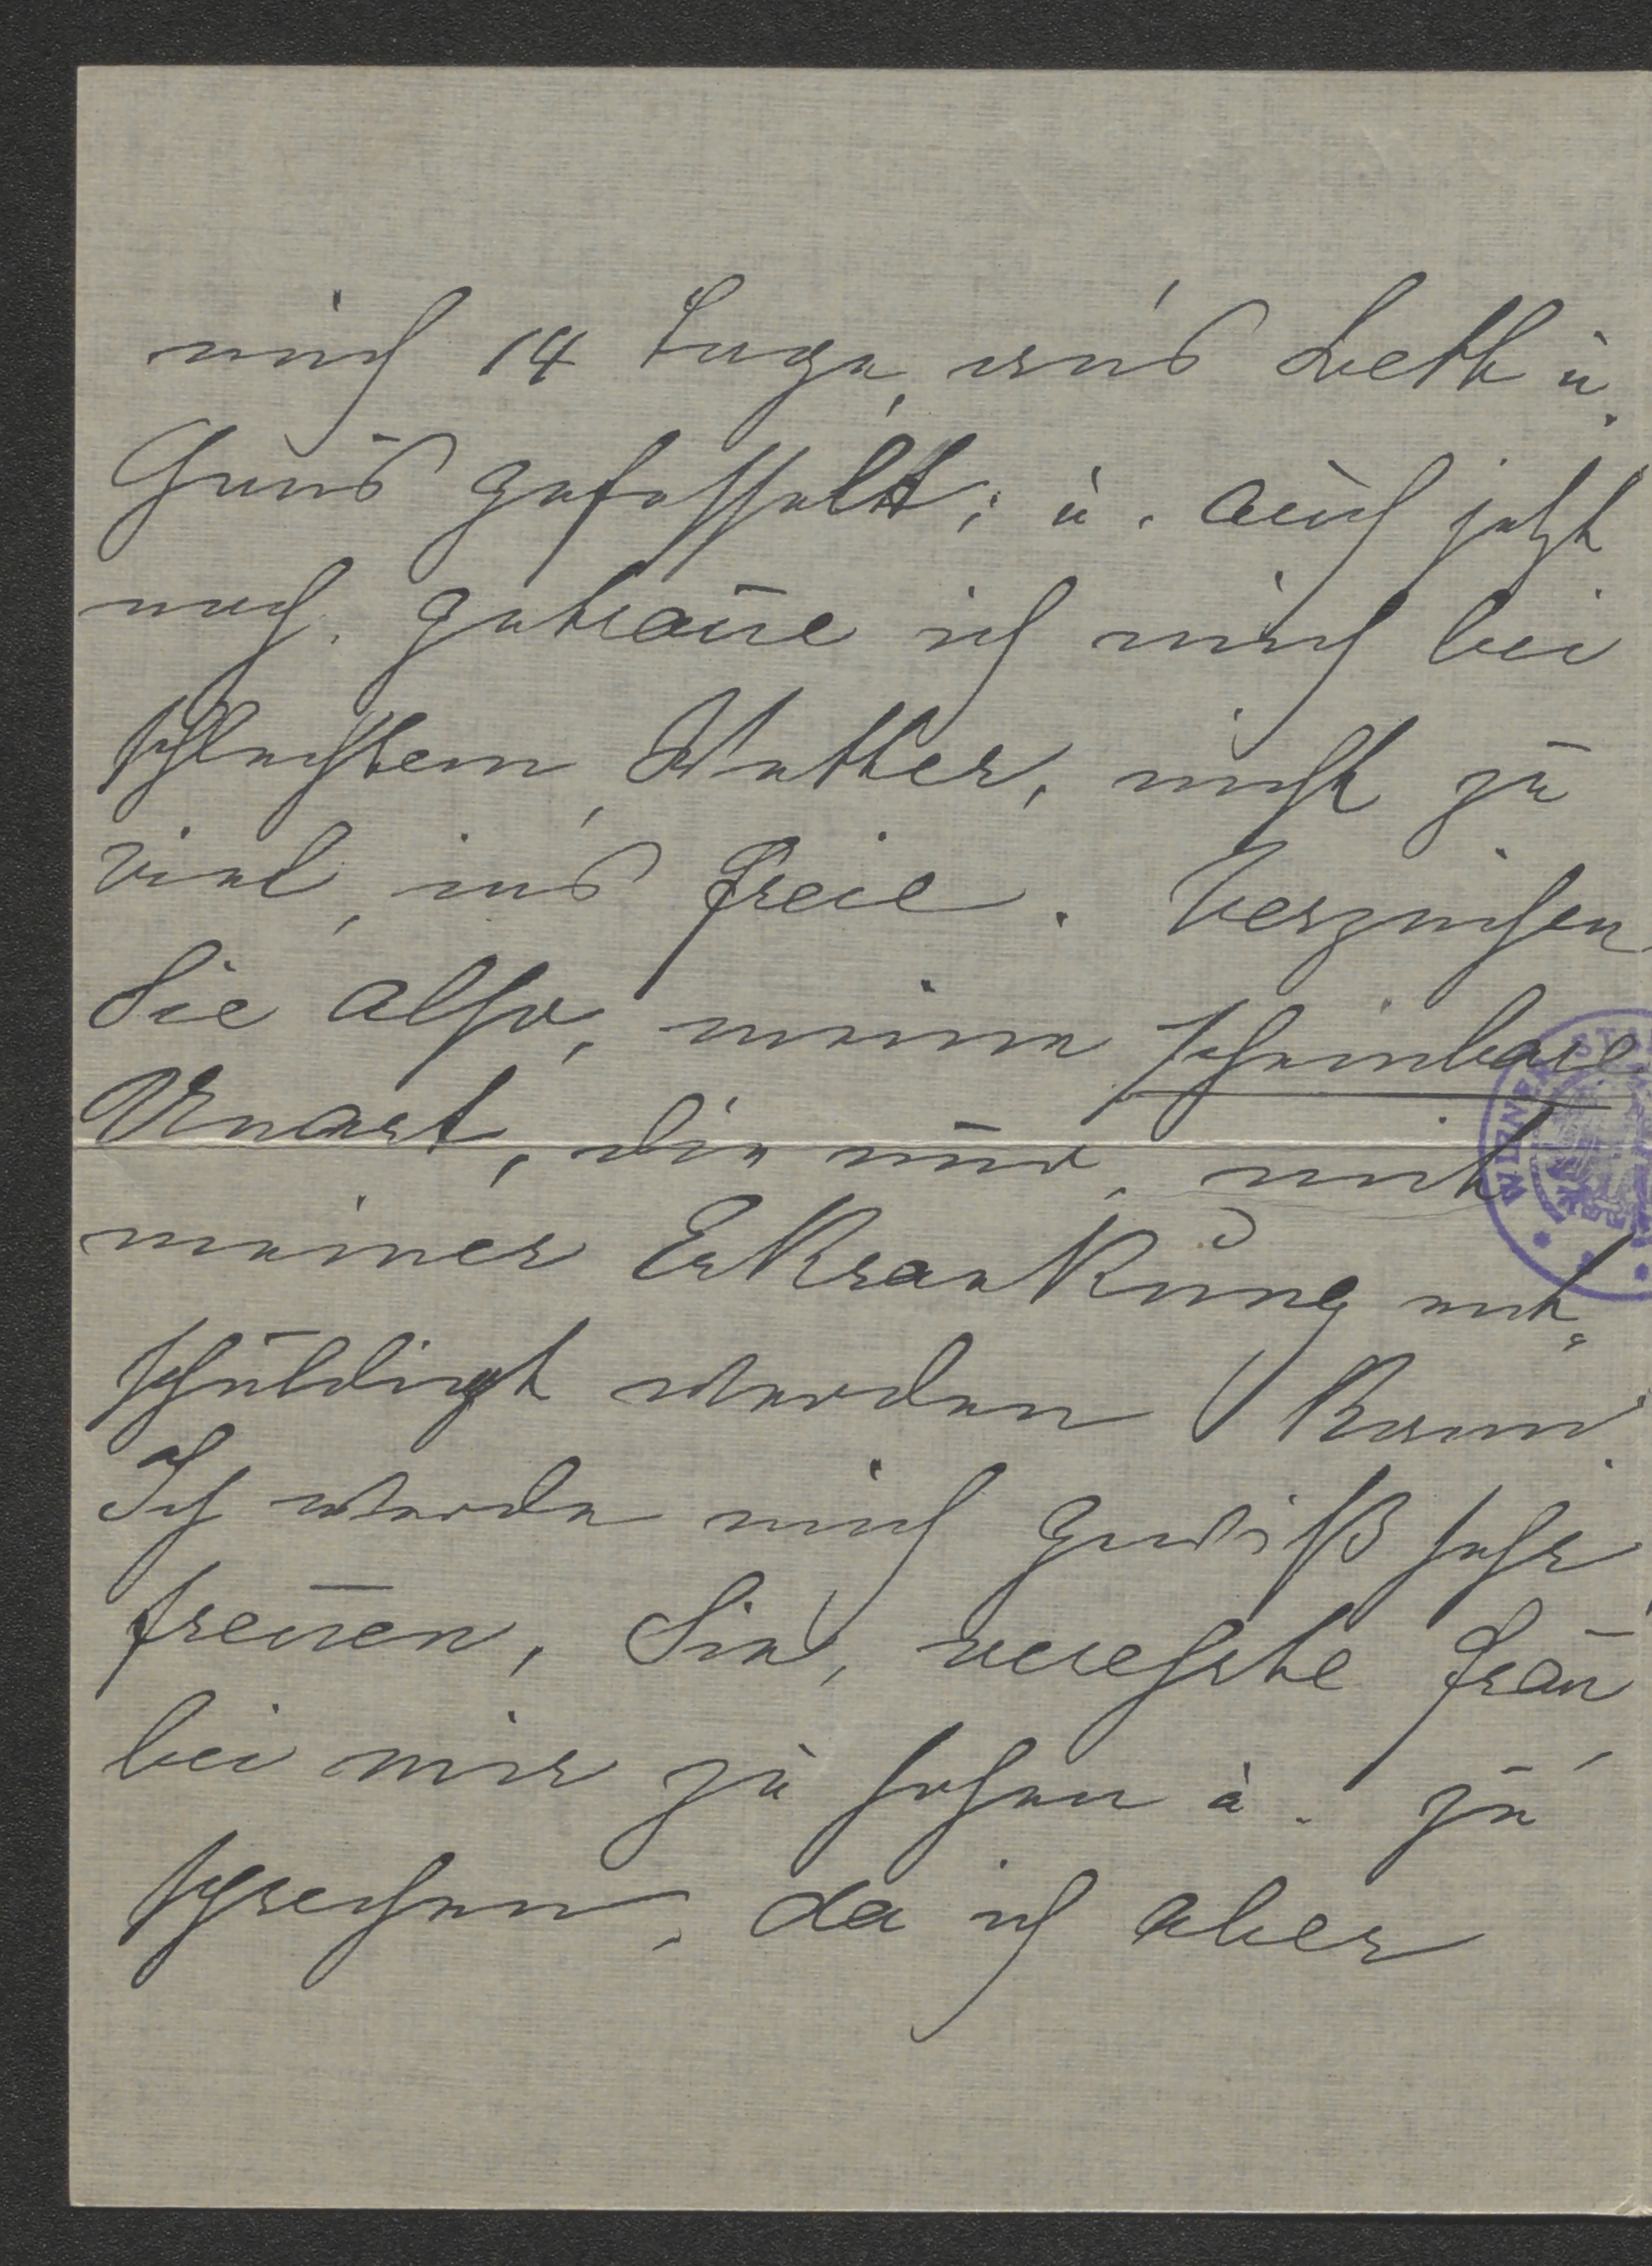 mich 14 Tage, an's Bett u.
Haus gefesselt; u. auch jetzt
noch getraue ich mich bei
schlechtem, Wetter, nicht zu
viel, in's Freie. Verzeihen
Sie also, meine scheinbare
Unart, die nur, mit
meiner Erkrankung ent-
schuldigt werden kann.
Ich werde mich gewiß sehr
freuen, Sie, verehrte Frau
bei mir zu sehen u. zu
sprechen, da ich aber
WIENER STA